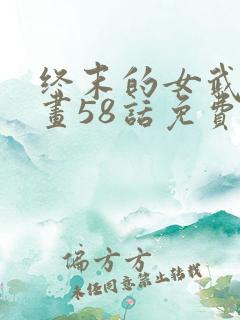 终末的女武
畫58話免費
偏方方
未经同意禁止转载